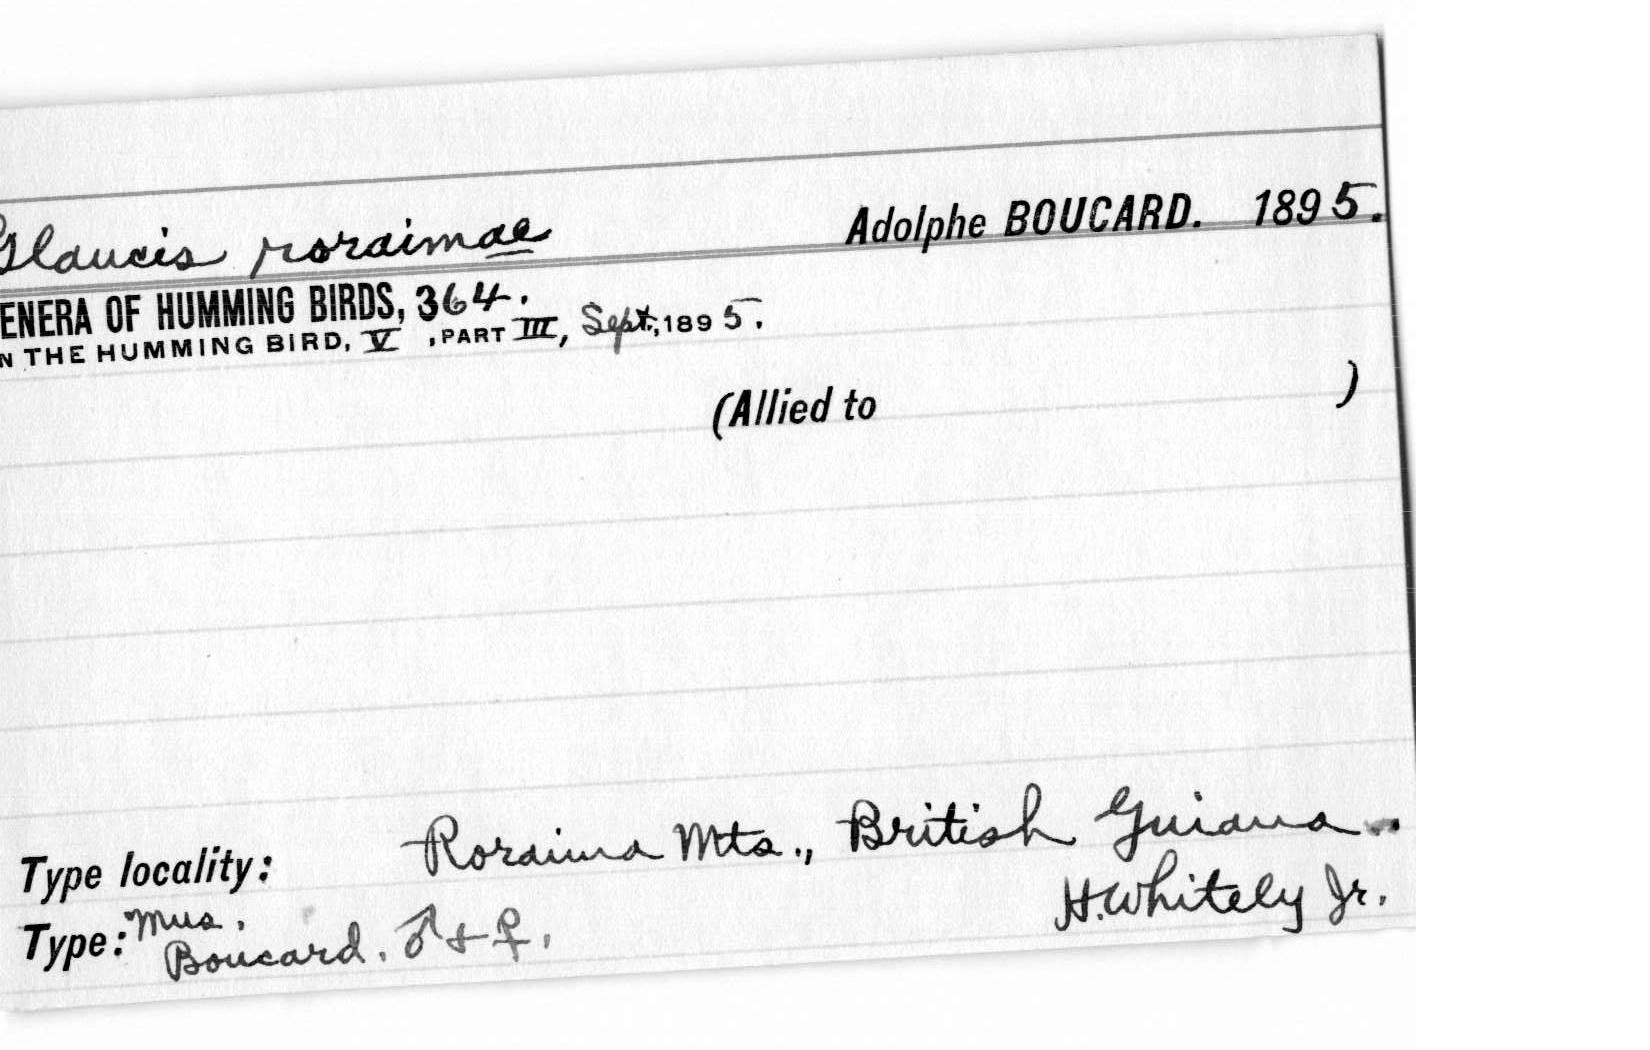 Glaucis roraimae Adolphe BOUCARD. 1895.
ENERA OF HUMMING BIRDS, 364.
N THE HUMMING BIRD, V, PART III, Sept., 1895.
(Allied to )
Type locality: Roraima Mts., British Guiana.
H. Whitely Jr.
Type: Mus.
Boucard. ♂ + ♀.